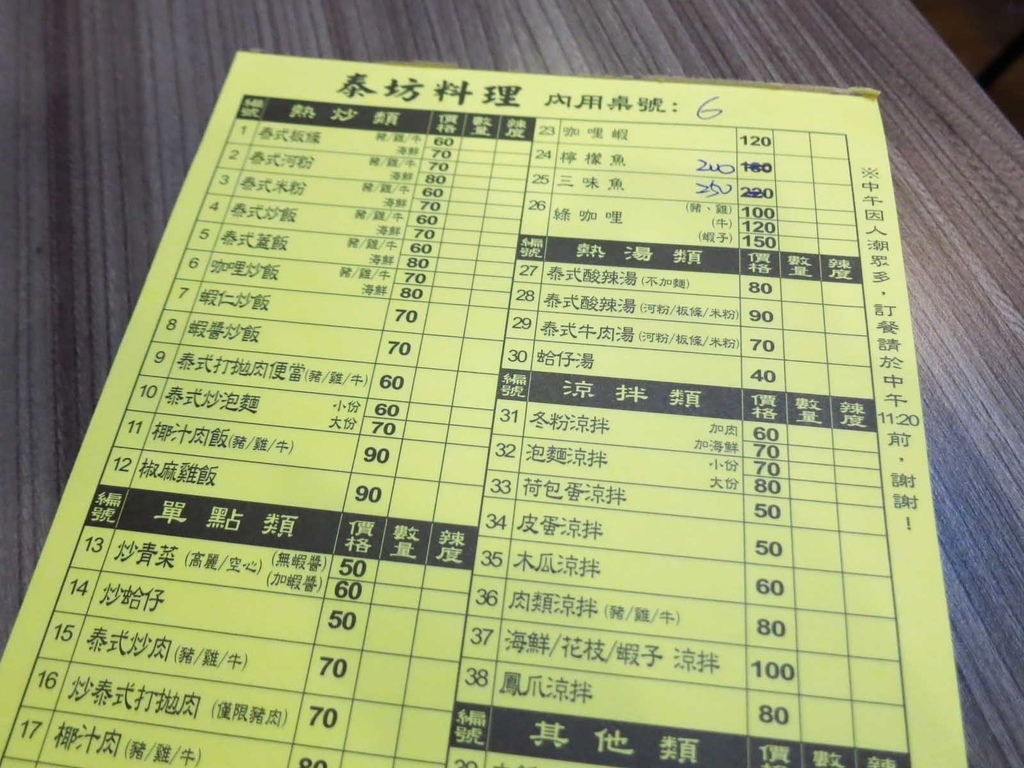 泰坊料理 內用桌號: 6
編號 熱炒類 價格 數量 辣度
1 泰式板條 豬/雞/牛 60
海鮮 70
2 泰式河粉 豬/雞/牛 70
海鮮 80
3 泰式米粉 豬/雞/牛 60
海鮮 70
4 泰式炒飯 豬/雞/牛 60
海鮮 70
5 泰式蓋飯 豬/雞/牛 60
海鮮 80
6 咖哩炒飯 豬/雞/牛 70
海鮮 80
7 蝦仁炒飯 70
8 蝦醬炒飯 70
9 泰式打拋肉便當(豬/雞/牛) 60
10 泰式炒泡麵 小份 60
大份 70
11 椰汁肉飯(豬/雞/牛) 90
12 椒麻雞飯 90
編號 單點類 價格 數量 辣度
13 炒青菜 (高麗/空心) (無蝦醬) 50
(加蝦醬) 60
14 炒蛤仔 50
15 泰式炒肉(豬/雞/牛) 70
16 炒泰式打拋肉 (僅限豬肉) 70
17 椰汁肉 (豬/雞/牛) 80
23 咖哩蝦 120
24 檸檬魚 200 180
25 三味魚 250 220
26 綠咖哩 (豬、雞) 100
(牛) 120
(蝦子) 150
編號 熱湯類 價格 數量 辣度
27 泰式酸辣湯(不加麵) 80
28 泰式酸辣湯(河粉/板條/米粉) 90
29 泰式牛肉湯(河粉/板條/米粉) 70
30 蛤仔湯 40
編號 涼拌類 價格 數量 辣度
31 冬粉涼拌 加肉 60
加海鮮 70
32 泡麵涼拌 小份 70
大份 80
33 荷包蛋涼拌 50
34 皮蛋涼拌 50
35 木瓜涼拌 60
36 肉類涼拌(豬/雞/牛) 80
37 海鮮/花枝/蝦子 涼拌 100
38 鳳爪涼拌 80
編號 其他類 價格 數量 辣度
39
※中午因人潮眾多,訂餐請於中午11:20前,謝謝!